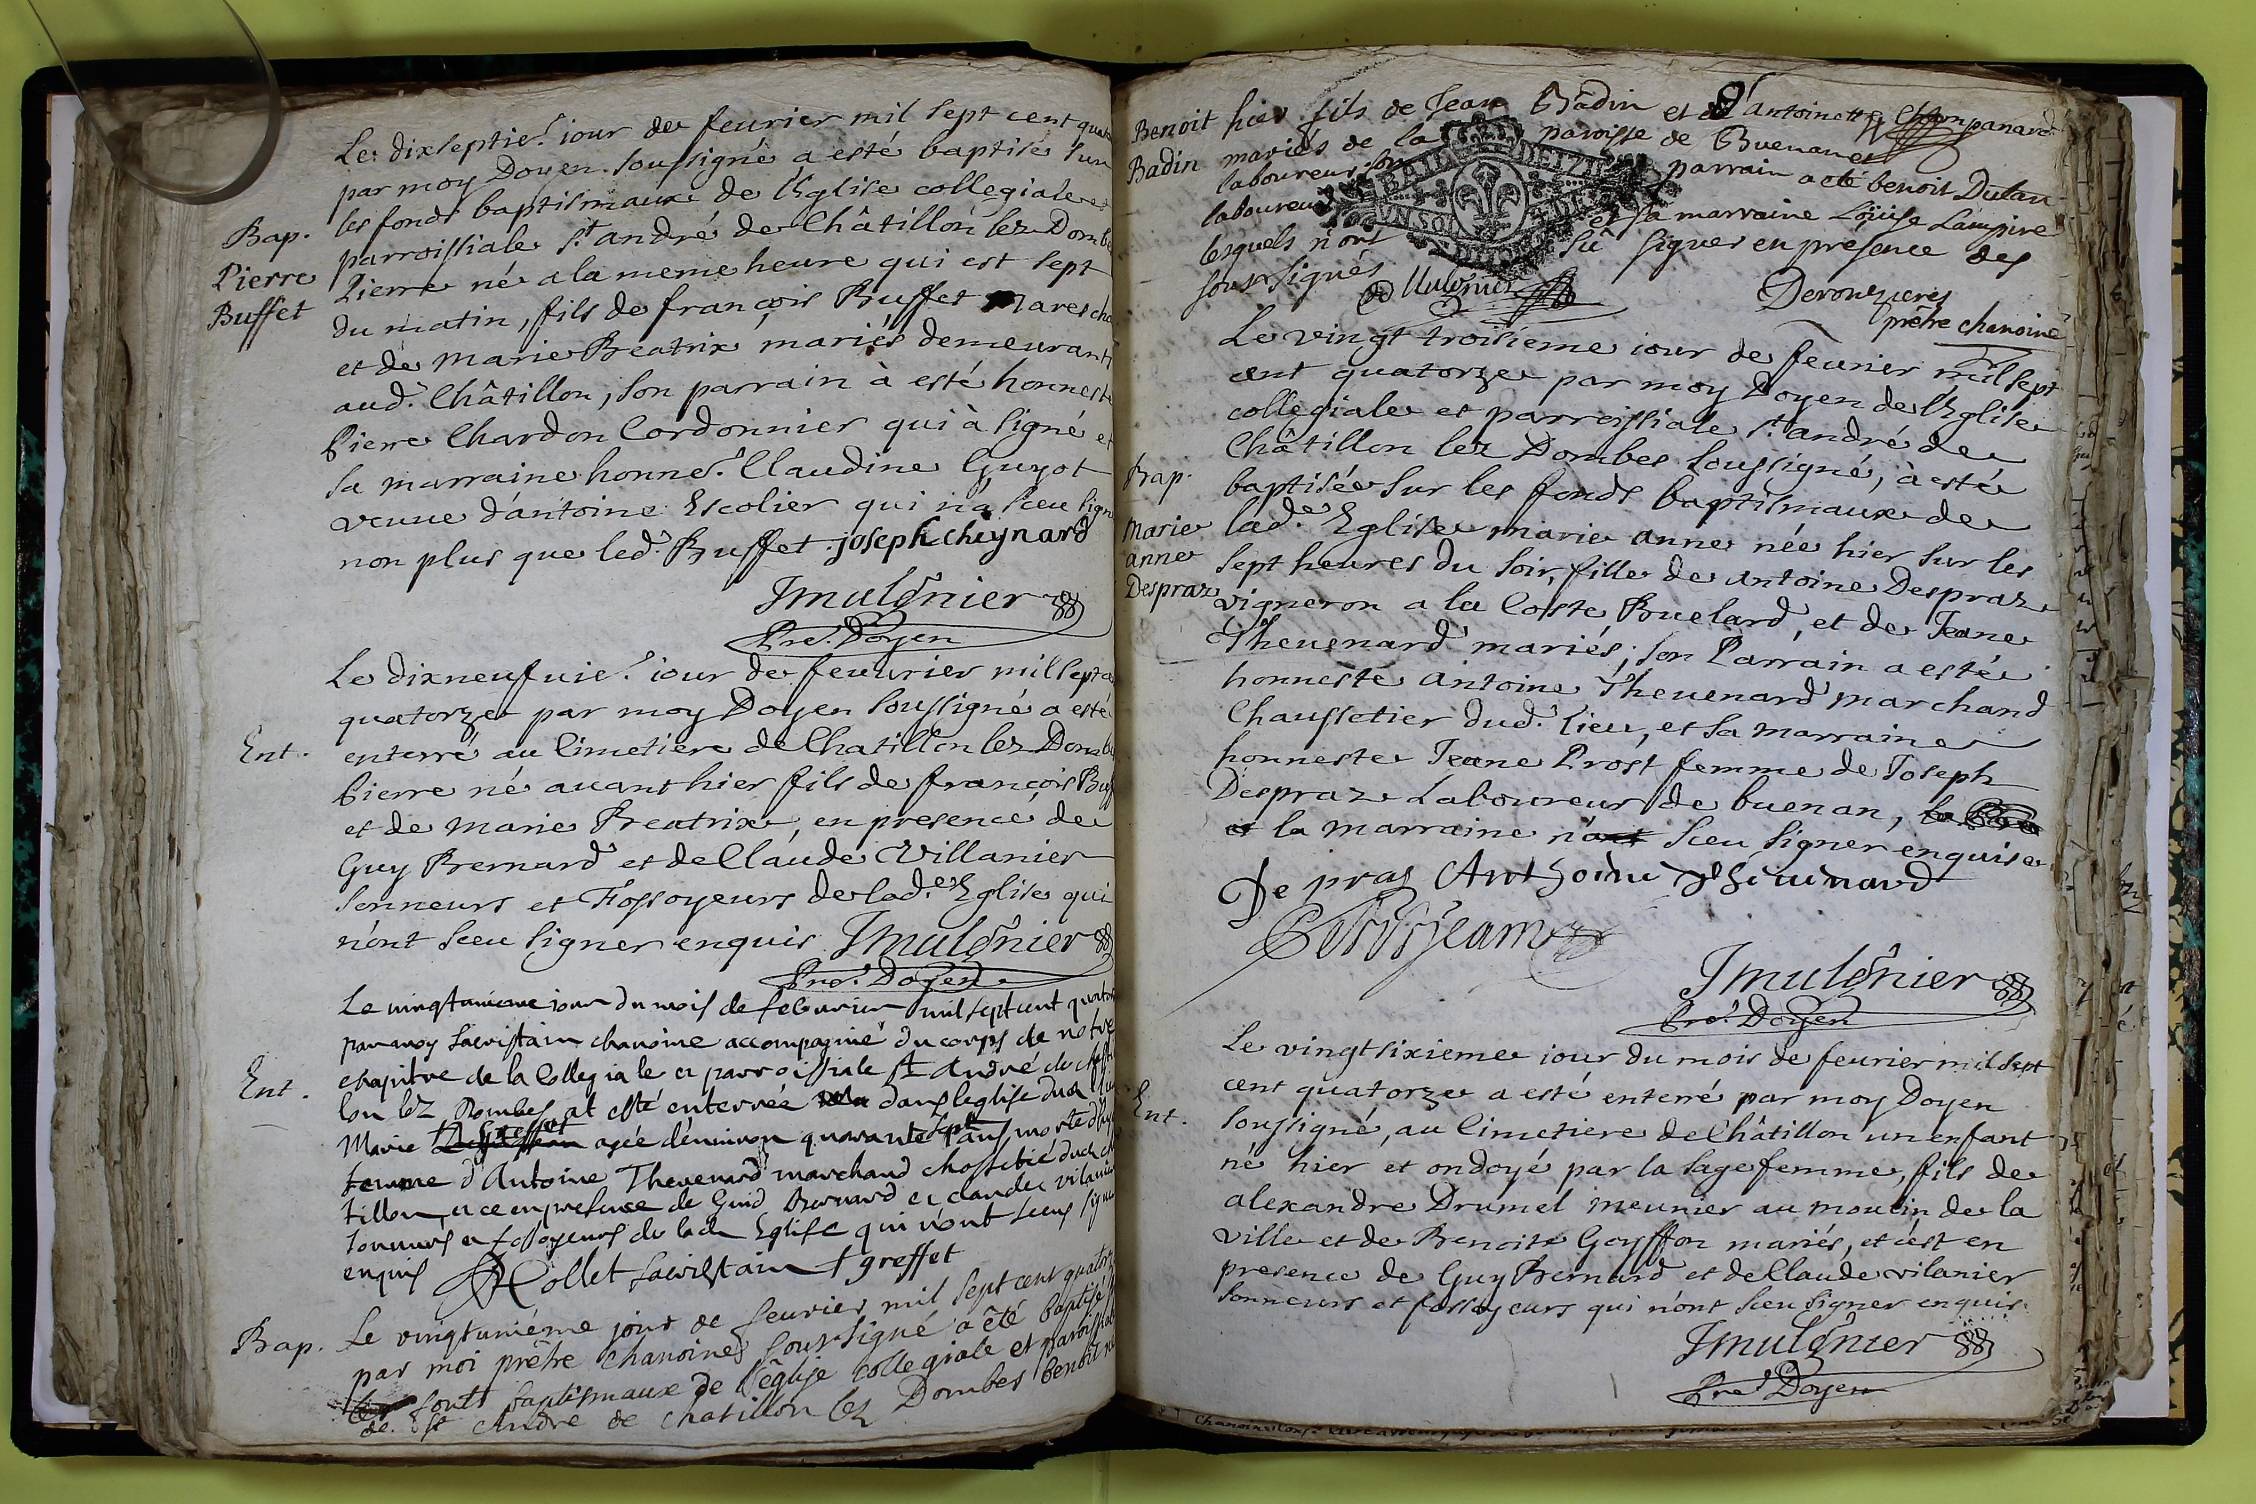 Bap.
Pierre
Buffet
Le dixseptie.e iour de feurier mil sept cent quato
par moy Doyen soussigné a esté baptisé sur
les fonds baptismaux de l'Eglise collegiale et
parroissiale s.t andré de Châtillon lez Dombe
Pierre né a la meme heure qui est sept
du matin, fils de françois Buffet Marescha
et de Marie Beatrix mariés demeurants
aud.t Châtillon, son parrain à esté honneste
Pierre Chardon Cordonnier qui à signé et
sa marraine honne.te Claudine Guyot
veuue d'antoine Escolier qui n'a sceu sign
non plus que led.t Buffet joseph cheynard
Jmulônier
Pre.e Doyen
Ent.
Le dixneufuie.e iour de feuurier mil sept ce
quatorze par moy Doyen soussigné a esté
enterré au Cimetiere de Chatillon lez Domb
Pierre né auanthier fils de françois Buff
et de Marie Beatrix, en presence de
Guy Bernard et de Claude Villanier
sonneurs et Fossoyeurs de lad.e Eglise qui
n'ont sceu signer enquis Jmulônier
Pre.e Doyen
Ent.
Le uingtunieme iour du mois de feburier mil sept cent quator
par moy sacristain chanoine accompagné du corps de notre
chapitre de la Collegiale et parroissiale st André de chasti
lon lez Dombes at esté enterrée dans leglise dud lieu
Marie greffet agée d'enuiron quarante sept ans, morte d'hy
femme d'Antoine Theuenard marchand chossetié dud cha
tillon, et ce en presence de Guid Bernard et claude vilanier
sonneurs et fossoyeurs de lade Eglise qui n'ont sceu signer
enquis Collet sacristain + greffet
Bap. Le vingtuniéme jour de feurier mil sept cent quatorz
par moi prêtre chanoine soussigné a êté baptisé
fonts baptismaux de l'église collegiale et paroissiale
de st André de chatillon lez Dombes benoit né
Benoit
Badin
hier fils de Jean Badin et d'antoinette Champanard
mariés de la paroisse de Buenanes
laboureur son parrain a eté benoit Dulan
laboureur et sa marraine Loüise Lampire
lesquels n'ont sû signer en présence des
soussignés
BAIL DETZIE
VN SOL
Mulonier
Derouzieres
prêtre chanoine
Bap.
Marie
anne
Despraz
Le vingt troisieme iour de feurier mil sept
cent quatorze par moy Doyen de l'Eglise
collegiale et parroissiale s.t andré de
Châtillon lez Dombes soussigné, à esté
baptisée sur les fonds baptismaux de
lad.e Eglise marie anne née hier sur les
sept heures du soir, fille de antoine Despraz
vigneron a la Coste Buelard, et de Jeane
Theuenard mariés; son Parrain a esté
honneste antoine Theuenard marchand
Chaussetier dud.t lieu, et sa marraine
honneste Jeane Prost femme de Joseph
Despraz Laboureur de buenan,
la marraine n'a sceu signer enquise
De praz Anthoine Theuenard
Petitjean
Jmulônier
Pre.e Doyen
Ent.
Le vingtsixieme iour du mois de feurier mil sept
cent quatorze a esté enterré par moy Doyen
soussigné, au Cimetiere de Châtillon un enfant
né hier et ondoyé par la sage femme, fils de
alexandre Drumel meunier au moulin de la
ville et de Benoite Goyffon mariés, et c'est en
presence de Guy Bernard et de Claude vilanier
sonneurs et fossoyeurs qui n'ont sceu signer enquis
Jmulônier
Pre.e Doyen